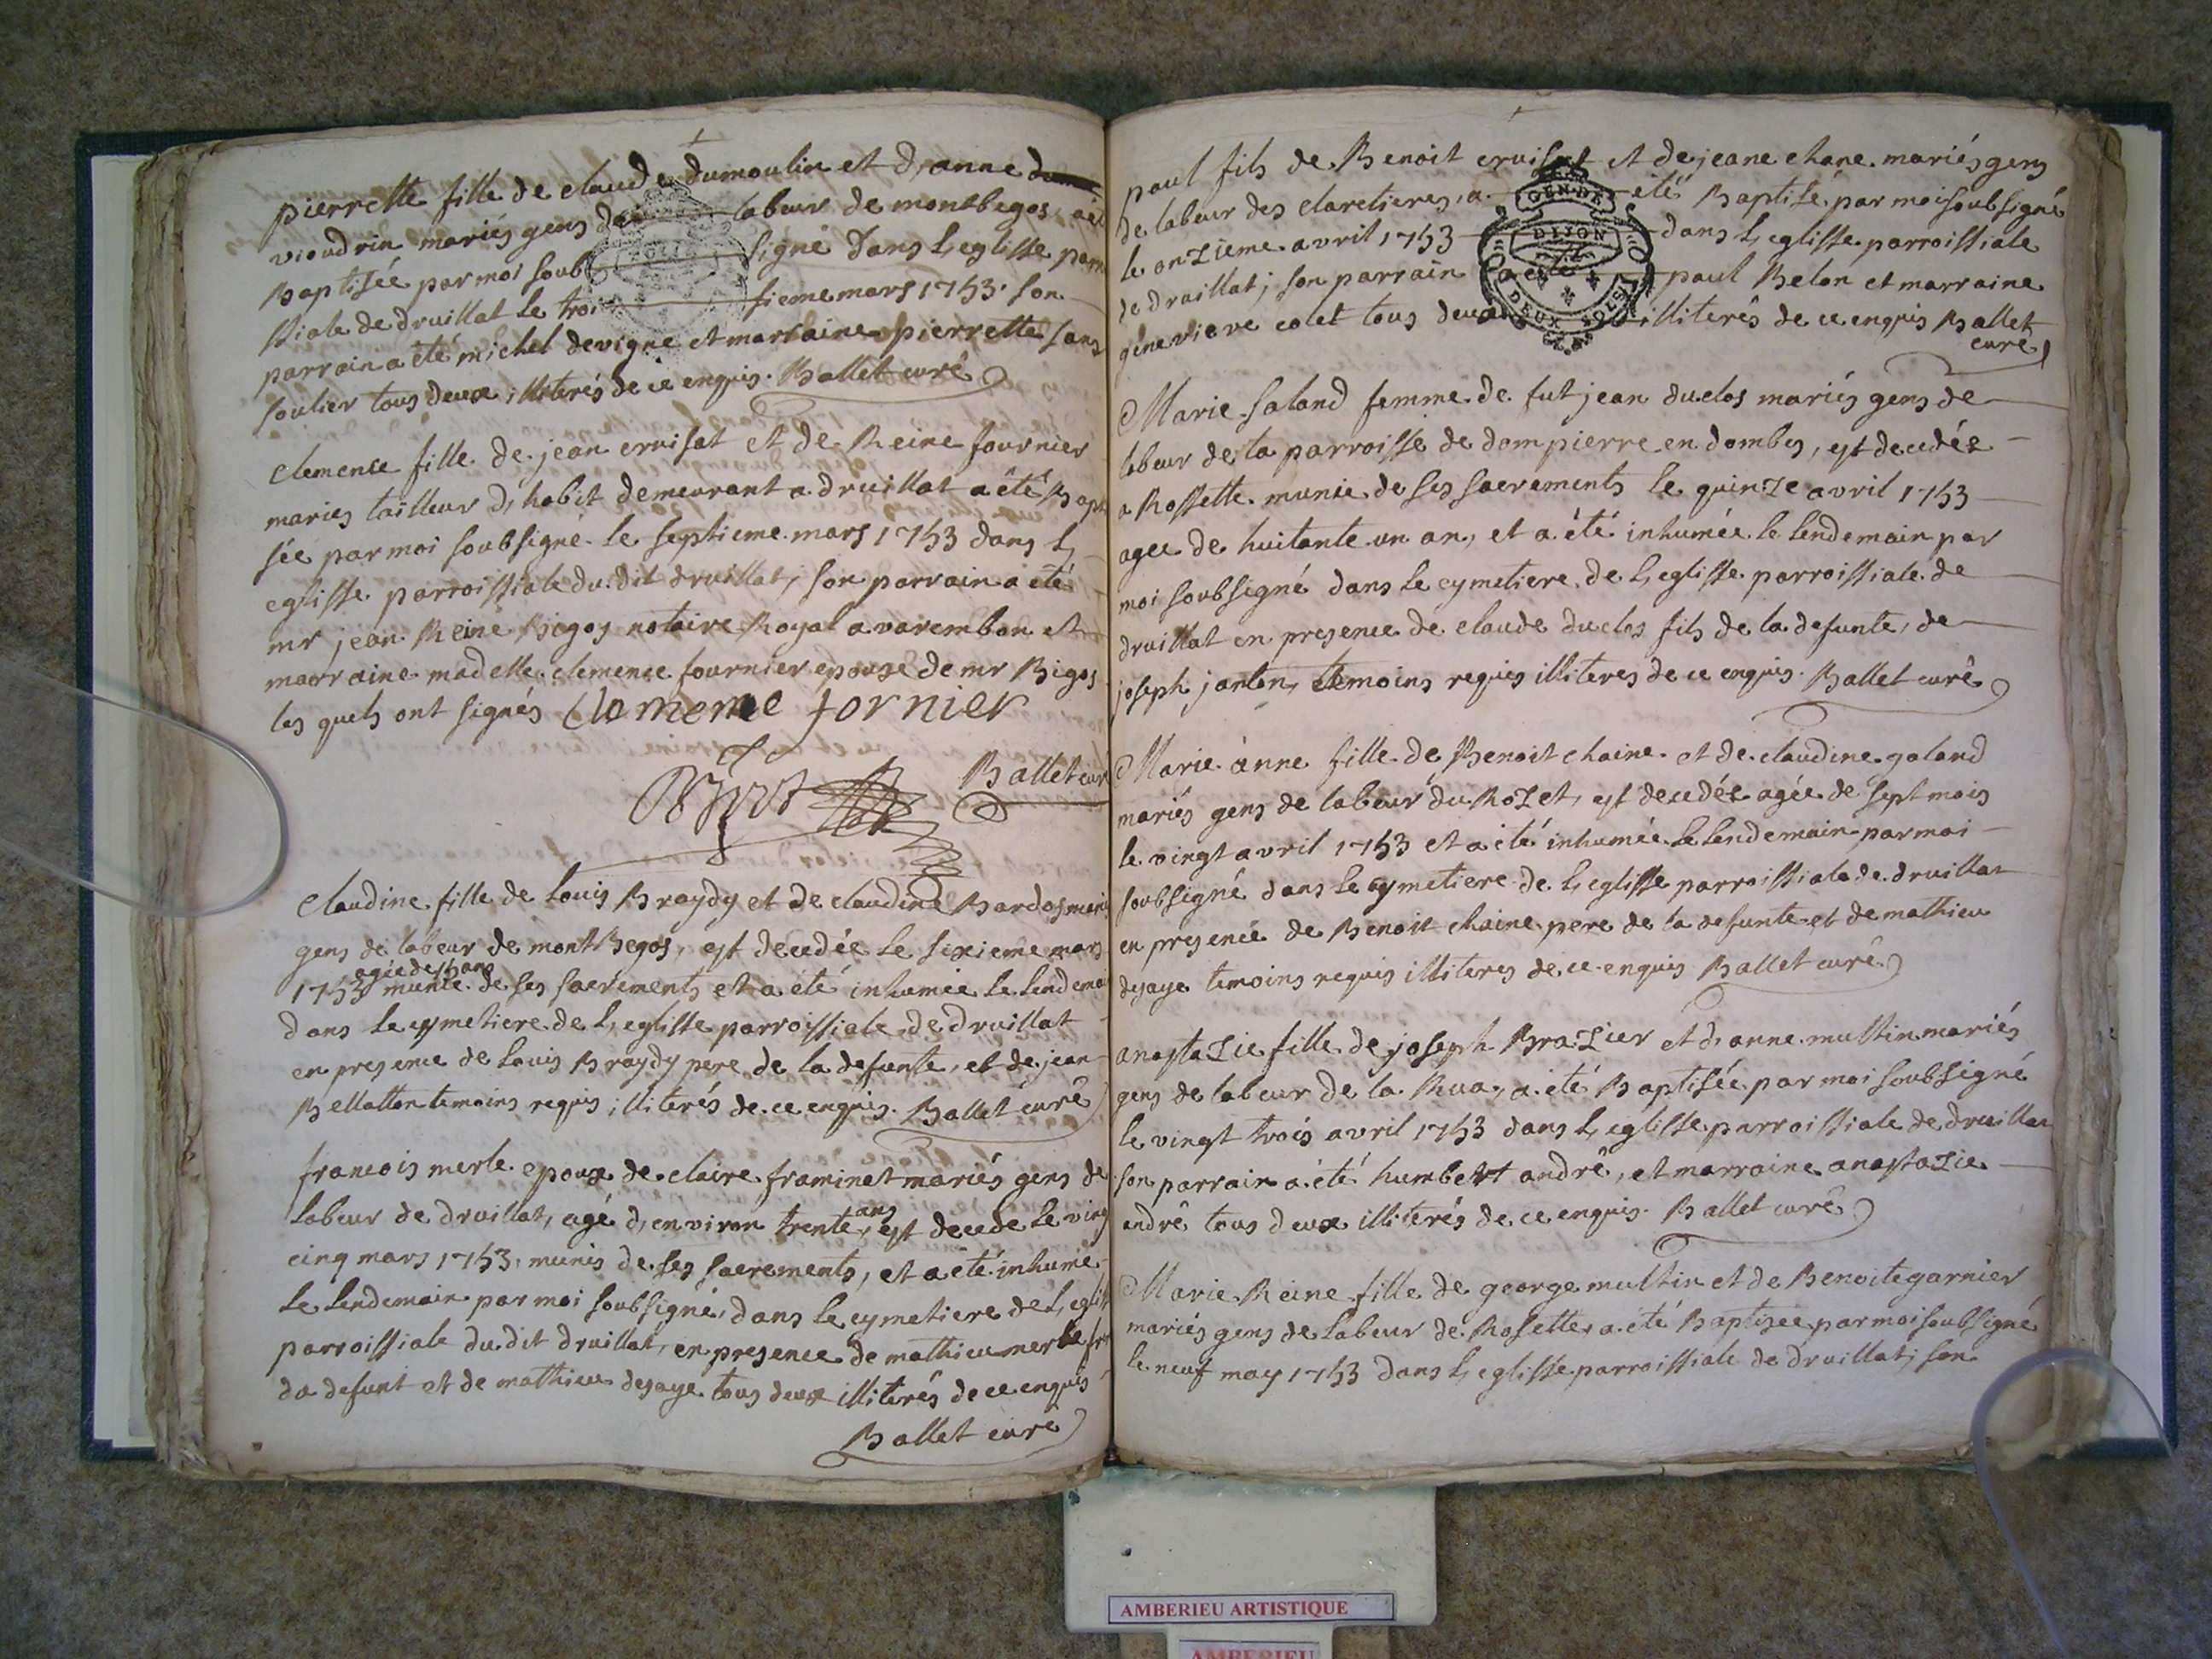 pierrette fille de claude dumoulin et d,anne
vioudrin mariés gens de labeur de montbegos, a été
Baptisée par moi soubsigné dans L,eglisse parroi
ssiale de druillat le troisieme mars 1753. son
parrain a été michel devigne et marraine pierrette sans
soulier tous deux illiterés de ce enquis. Ballet curé
clemence fille de jean cruisat et de Reine fournier
mariés tailleur d,habit demeurant a druillat a été Bapti
sée par moi soubsigné le septieme mars 1753 dans L,
eglisse parroissiale du dit druillat, son parrain a été
mr jean Reiné Bigos notaire Royal a varembon et
marraine madelle clemence fournier epouse de mr Bigos
les quels ont signés Clemence fornier
Ballet curé
Claudine fille de Louis Braydy et de claudine Bardos mariés
gens de labeur de montBegos, est decedée le sixieme mars
1753 munie de ses sacrements et a été inhumée le lendemain
agée de ans
dans le cymetiere de L,eglisse parroissiale de druillat
en presence de Louis Braydy pere de la defunte, et de jean
Bellatton temoins requis illiterés de ce enquis. Ballet curé
francois merle epoux de claire framinet mariés gens de
labeur de druillat, agé d,environ trente ans, est decedé le vingt
cinq mars 1753, munis de ses sacrements, et a été inhumé
le lendemain par moi soubsigné, dans le cymetiere de L,eglisse
parroissiale du dit druillat, en presence de mathieu merle
da defunt et de mathieu dejaye tous deux illiterés de ce enquis
Ballet curé
paul fils de Benoit cruisat et de jeane chane mariés gens
de labeur des claretieres, a été Baptisé par moi soubsigné
le onzieme avril 1753 dans L,eglisse parroissiale
de druillat; son parrain a été paul Belon et marraine
genevieve colet tous deux illiterés de ce enquis Ballet
curé
GEN.DE
DIJON
DEUX SOLS
Marie saland femme de fut jean duclos mariés gens de
labeur de la parroisse de dompierre en dombes, est decedée
a Rossette munie de ses sacrements le quinze avril 1753
agee de huitante un an, et a été inhumée le lendemain par
moi soubsigné dans le cymetiere de L,eglisse parroissiale de
druillat en presence de claude duclos fils de la defunte, de
joseph janton, temoins requis illiteres de ce enquis. Ballet curé
Marie anne fille de Benoit chaine et de claudine galand
mariés gens de labeur du Rozet, est decedée agée de sept mois
le vingt avril 1753 et a été inhumée le lendemain par moi
soubsigné dans le cymetiere de L,eglisse parroissiale de druillat
en presence de Benoit chaine pere de la defunte et de mathieu
dejaye temoins requis illiteres de ce enquis Ballet curé
anastazie fille de joseph Brazier et d,anne multin mariés
gens de labeur de la Rua, a été Baptisée par moi soubsigné
le vingt trois avril 1753 dans L,eglisse parroissiale de druillat
son parrain a été humbert andré, et marraine anastazie
andré tous deux illiterés de ce enquis. Ballet curé
Marie Reine fille de george multin et de Benoite garnier
mariés gens de labeur de Rosette, a été Baptisee par moi soubsigné
le neuf may 1753 dans L,eglisse parroissiale de druillat; son
AMBERIEU ARTISTIQUE
AMBERIEU